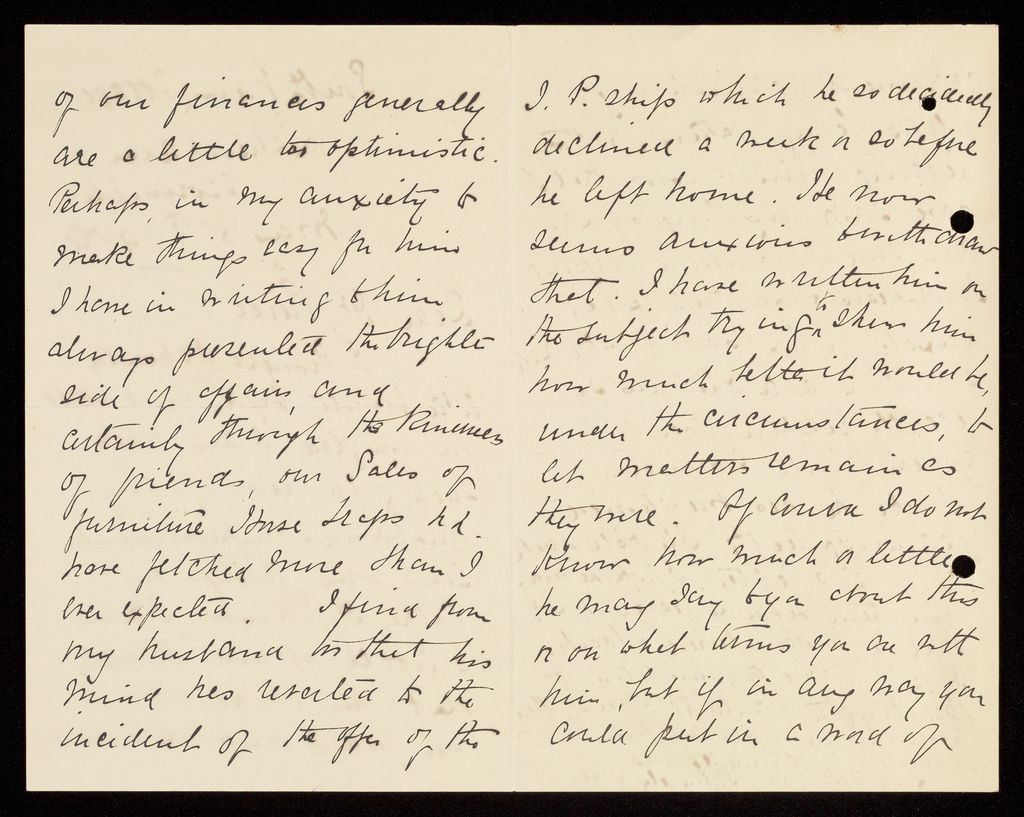 of our finances generally
are a little too optimistic.
Perhaps, in my anxiety to
make things easy for him
I have in writing to him
always presented the brighter
side of affairs, and
certainly through the kindness
of friends, our Sales of
furniture Horse Traps &c.
have fetched more than I
ever expected. I find from
my husband too that his
mind has reverted to the
incident of the offer of the
J. P. ship which he so decidedly
declined a week or so before
he left home. He now
seems anxious to withdraw
that. I have written him on
the subject trying to shew him
how much better it would be,
under the circumstances, to
let matters remain as
they were. Of course I do not
know how much or little
he may say to you about this
or on what terms you are with
him, but if in any way you
could put in a word of